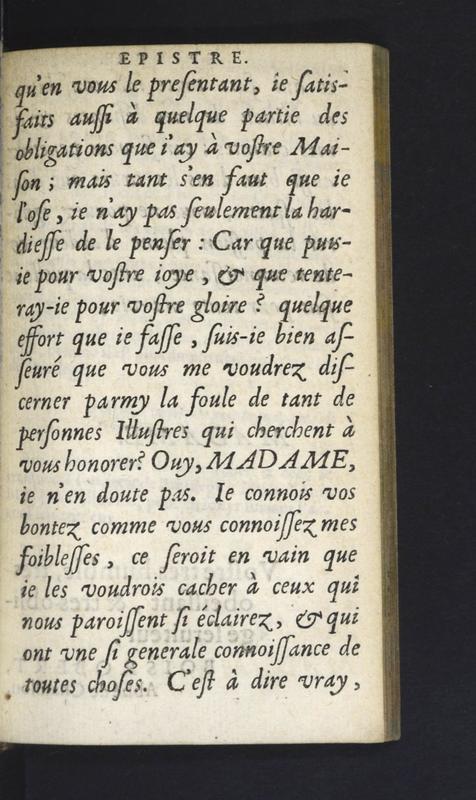 EPISTRE.
qu'en vous le preſentant, ie ſatiſ-
faits auſſi à quelque partie des
obligations que i'ay à voſtre Mai-
ſon ; mais tant s'en faut que ie
l'oſe, ie n'ay pas ſeulement la har-
dieſſe de le penſer : Car que puis-
ie pour voſtre ioye, & que tente-
ray-ie pour voſtre gloire ? quelque
effort que ie faſſe, ſuis-ie bien aſ-
ſeuré que vous me voudrez diſ-
cerner parmy la foule de tant de
perſonnes Illuſtres qui cherchent à
vous honorer? Ouy, MADAME,
ie n'en doute pas. Ie connois vos
bontez comme vous connoiſſez mes
foibleſſes, ce ſeroit en vain que
ie les voudrois cacher à ceux qui
nous paroiſſent ſi éclairez, & qui
ont vne ſi generale connoiſſance de
toutes choſes. C'eſt à dire vray,